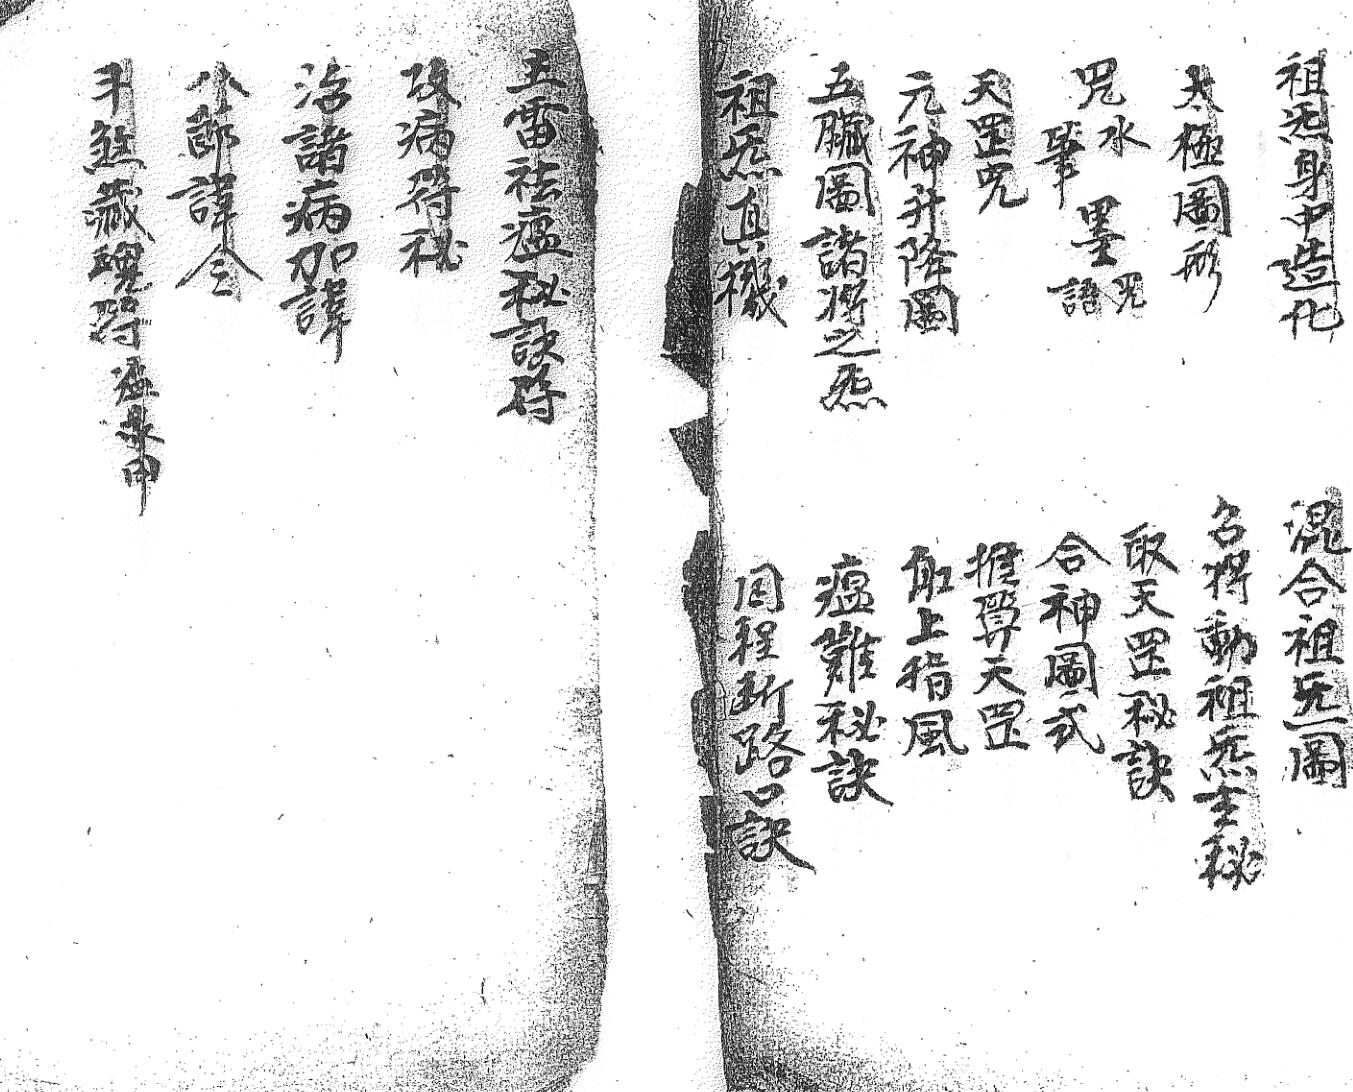 祖炁身中造化
混合祖炁圖
太極圖形
名將動祖炁主秘
咒水
筆墨
語咒
取天罡秘訣
合神圖式
天罡咒
推算天罡
元神升降圖
取上指風
五臟圖諸將之炁
瘟難秘訣
祖炁真機
因程断路口訣
五雷祛瘟秘訣符
攻病符秘
治諸病加諱
八部諱令
斗煞藏魂符